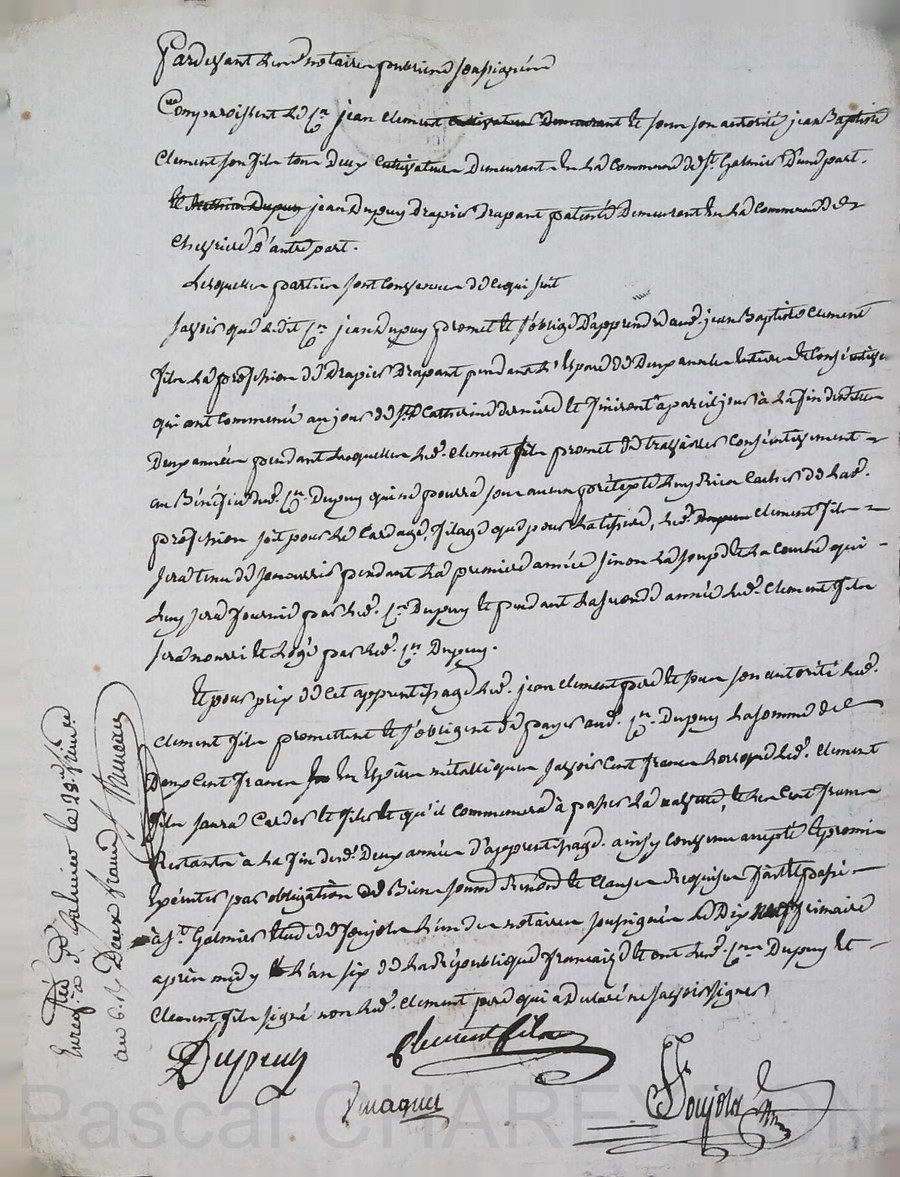 Pardevant les notaires publics soussignés
Comparoissent les Cns jean Clement cultivateur Demeurant et sous son autorité jean Baptiste
Clement son fils tous deux Cultivateurs Demeurants en la commune de St Galmier D'une part.
et Dupuy jean Dupuy Drapier drapant patenté Demeurant en la Commune de
Chevrieres D'autre part.
Lesquelles parties sont Convenues de ce qui suit
savoir que ledit Cn jean Dupuy promet et s'oblige d'apprendre aud. jean Baptiste Clement
fils la profession de Drapier Drapant pendant l'espace de Deux années entieres et Consécutives
qui ont Commencé au jour de Ste Catherine derniere et finiront à pareil jour à la fin desdites
Deux années pendant lesquelles led. Clement fils promet de travailler
au Bénéfice dud. Cn. Dupuy qui ne pourra sous aucun prétexte luy Rien Cacher de lad.
profession soit pour le Cardage, filage que pour la tisser, led. Clement fils
sera tenu de se nourrir pendant la premiere année sinon la soupe et la couche qui
luy sera fournie par led. Cn Dupuy et pendant la seconde année led. Clement fils
sera nourri et logé par led. Cn Dupuy.
Et pour prix de cet apprentissage led. jean Clement pere et sous son autorité led.
Clement fils promettent et s'obligent de payer aud. Cn. Dupuy la somme de
Deux Cent francs en Espèces métalliques savoir Cent francs lorsque led. Clement
fils saura Carder et filer et qu'il commencera à passer la navette, et les Cent francs
Restants à la fin desd. Deux années d'apprentissage. ainsy convenu accepté et promis
Exécuter par obligation de Biens soumis Renoncé et Clauses Requises fait et passé
à St. Galmier Etude de Soujols l'un des notaires soussignés le Dix neuf frimaire
après midy L'an six de la République française et ont led. Cn Dupuy et
Clement fils signé non led. Clement pere qui a Déclaré ne savoir signer
Dupuy Clement fils
Soujols
Enregistré à St Galmier le 29 frimaire
an 6. Deux francs
Pascal CHAREYRON